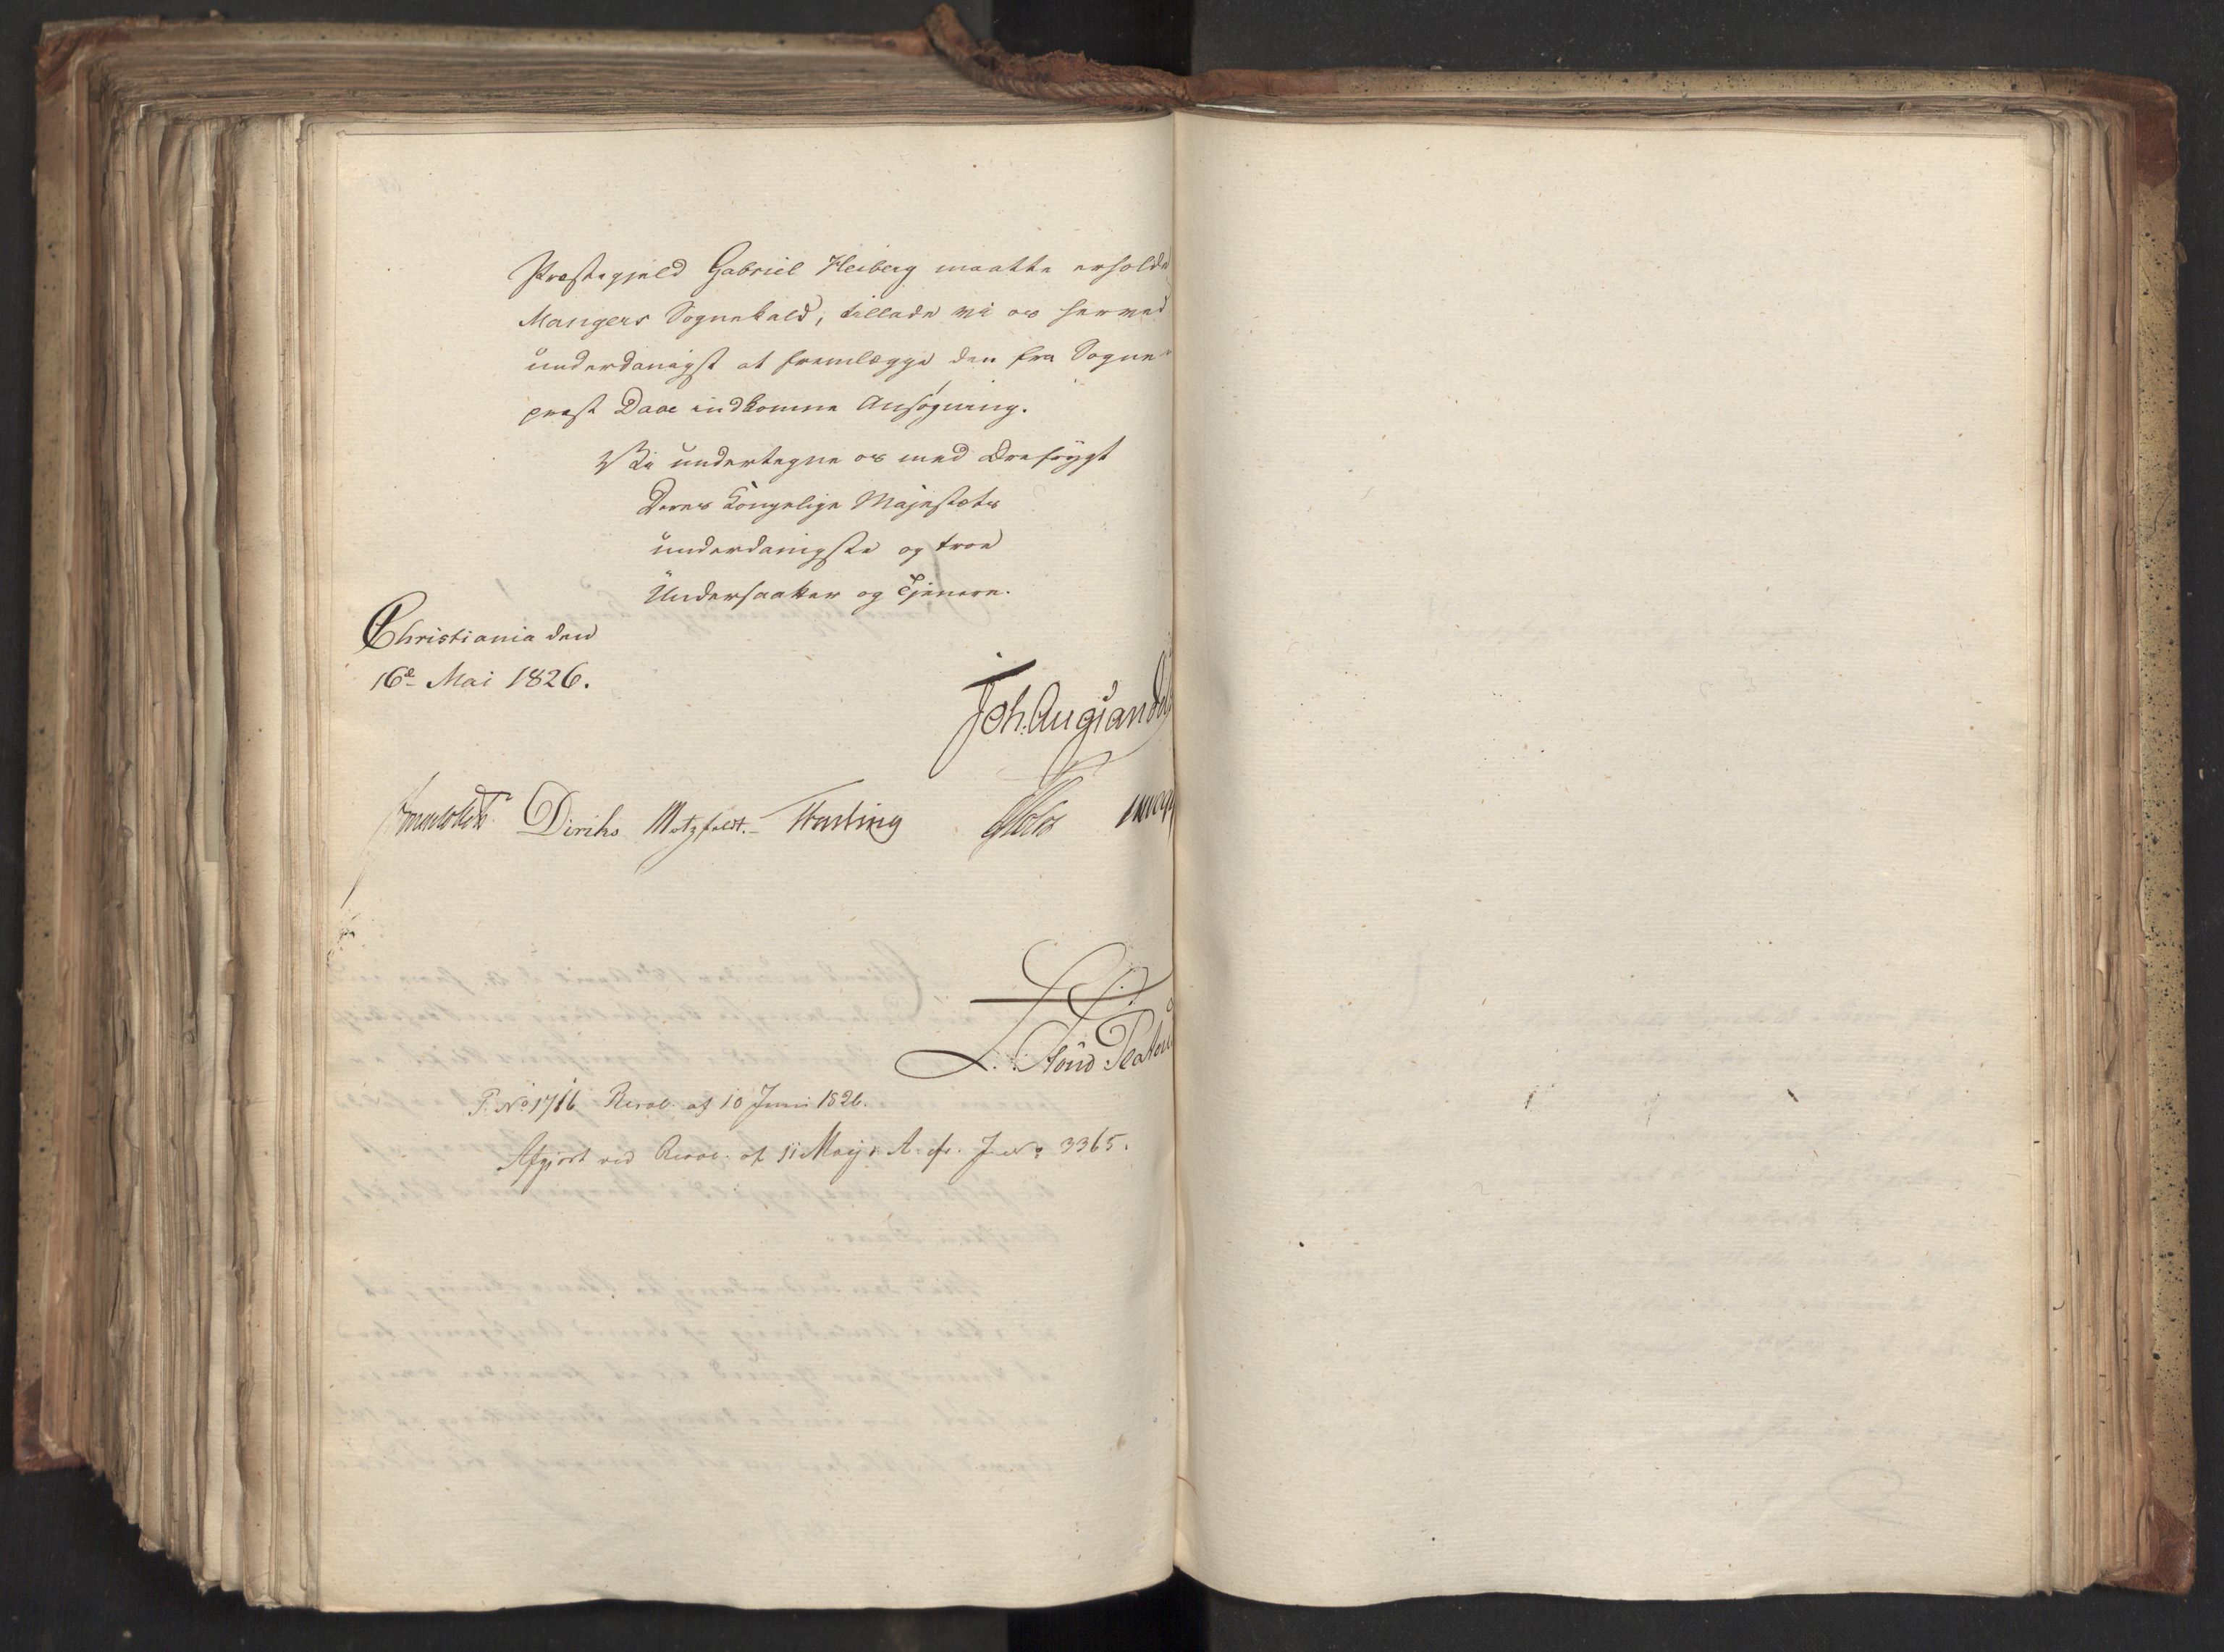 Præstegjeld Gabriel Heiberg maatte erholde
Mangers Sognekald, tillade vi os herved
underdanigst at fremlægge den fra Sogne-
præst Daae indkomne Ansøgning.
Vi undertegne os med Ærefrygt
Deres Kongelige Majestæts
underdanigste og troe
Undersaatter og Tjenere.
Christiania den
16de Mai 1826.
Joh. Aug Sande
Diriks Motzfeldt. Fasting Holst
L. v. Röed
P. No 1716 Resol. af 10 Juni 1826.
Afgjort ved Resol. af 11 Maij s. A. cfr. J. No 3365.